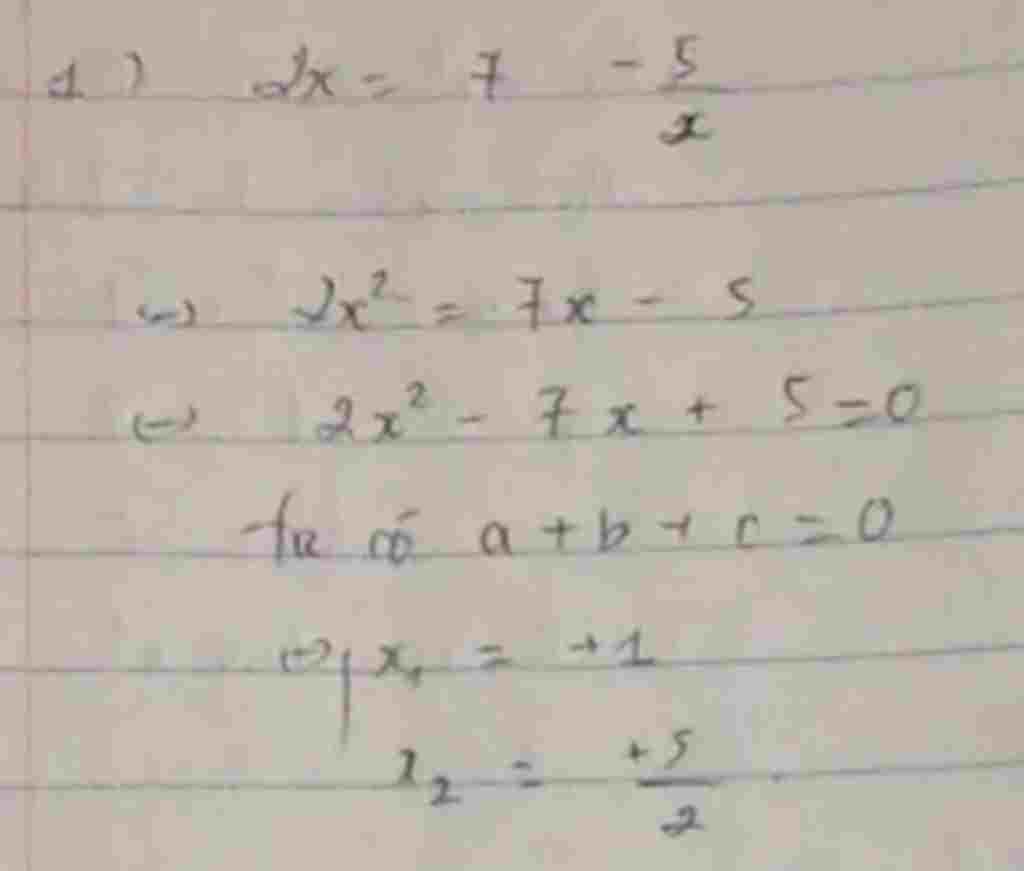 1) 2x = 7 - 5/x
<=> 2x² = 7x - 5
<=> 2x² - 7x + 5 = 0
ta có a + b + c = 0
<=> | x₁ = +1
x₂ = +5/2